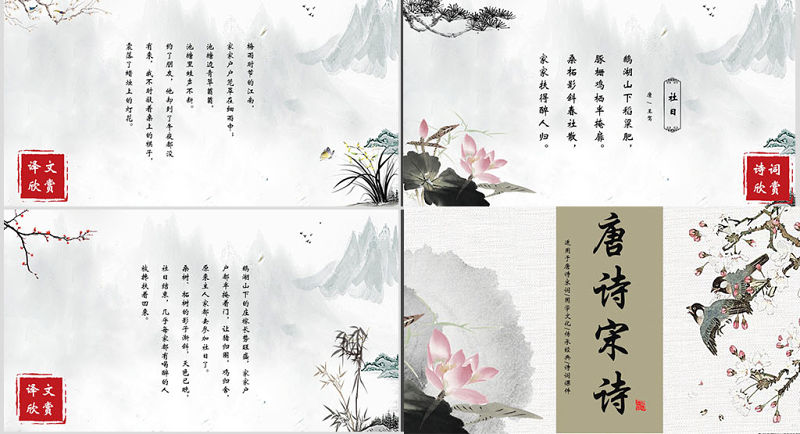 梅雨时节的江南,
家家户户笼罩在细雨中;
池塘边青草茵茵,
池塘里蛙声不断。
约了朋友,他却到了午夜都没
有来,我不时敲着桌上的棋子,
震落了蜡烛上的灯花。
译文
欣赏
社日
唐 | 王驾
鹅湖山下稻粱肥,
豚栅鸡栖半掩扉。
桑柘影斜春社散,
家家扶得醉人归。
诗词
欣赏
鹅湖山下的庄稼长势旺盛,家家户
户都半掩着门,让猪归圈,鸡归舍,
原来主人家都去参加社日了。
桑树、柘树的影子渐斜,天色已晚,
社日结束,几乎每家都有喝醉的人
被搀扶着回来。
译文
欣赏
唐诗宋诗
适用于唐诗宋词/国学文化/传承经典/诗词课件